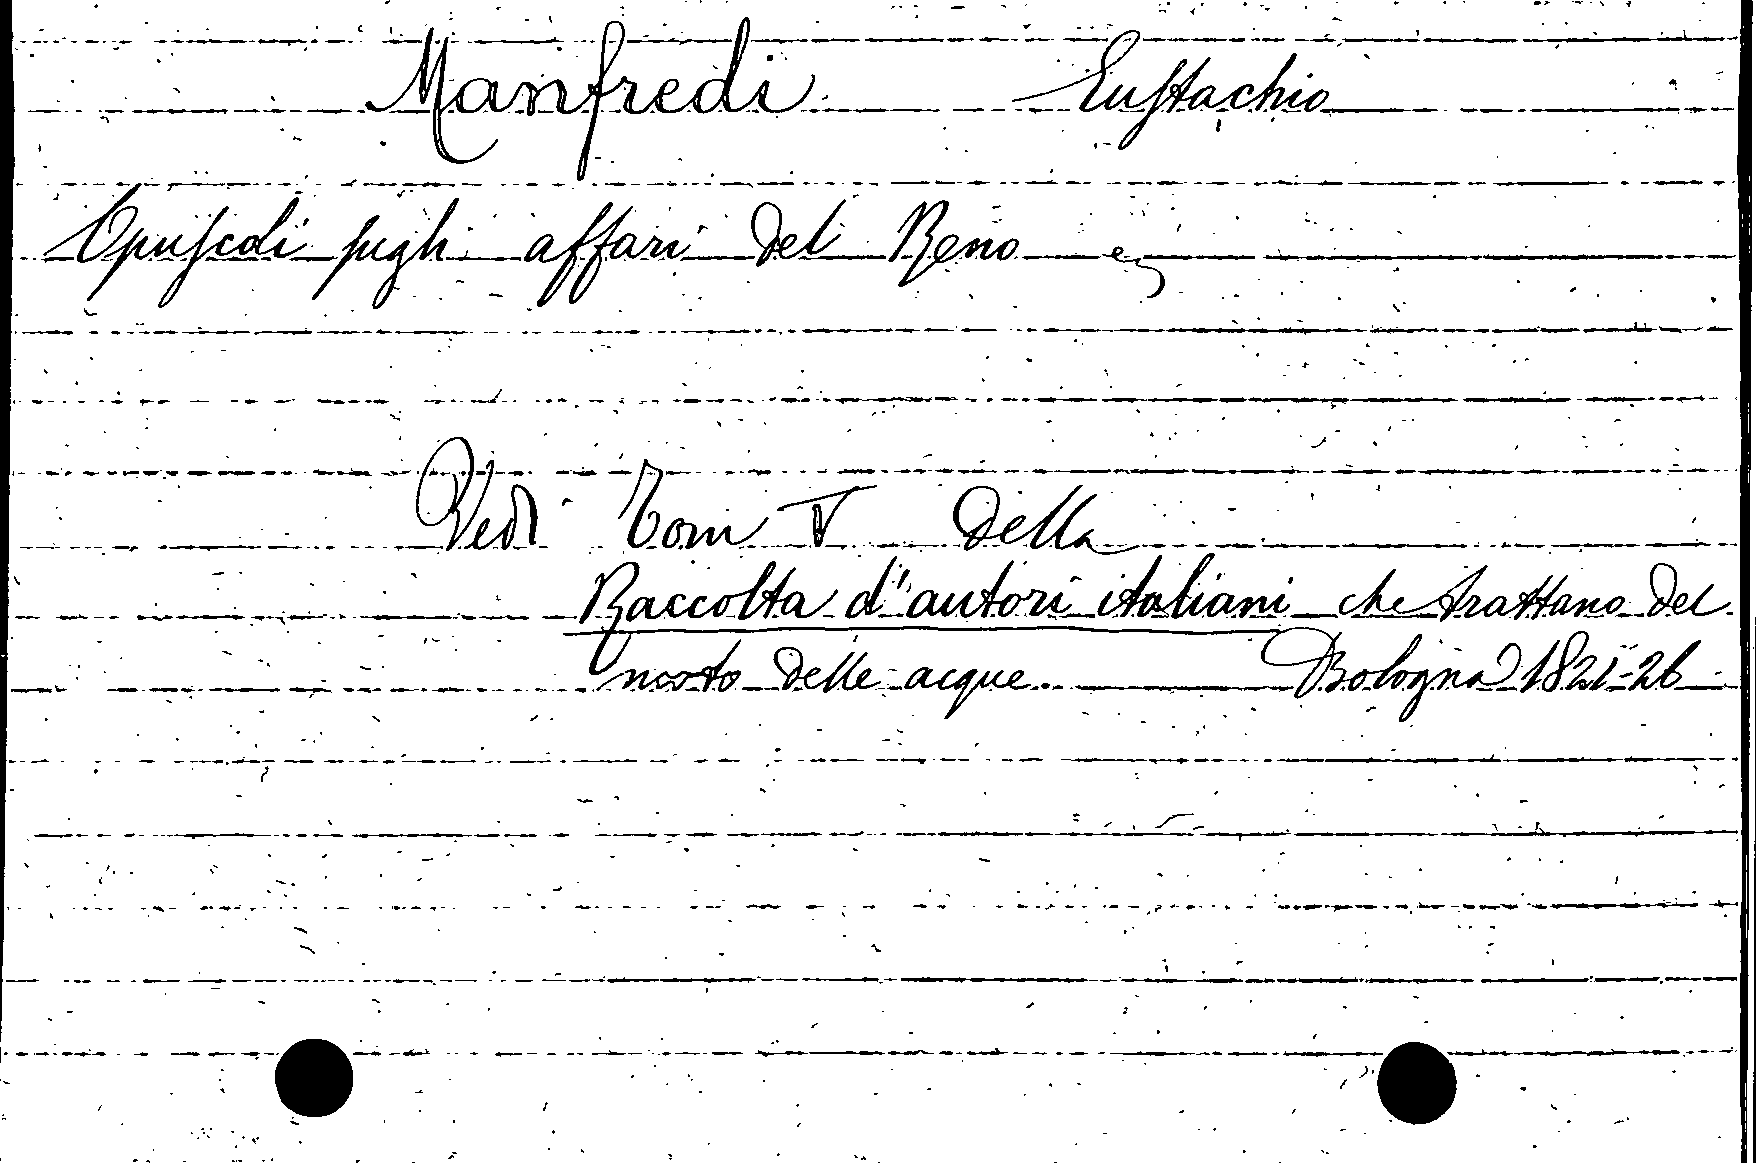 Manfredi Eustachio
Opuscoli sugli affari del Reno
Vedi Tom V della
Raccolta d'autori italiani che trattano del
moto delle acque. Bologna 1821-26